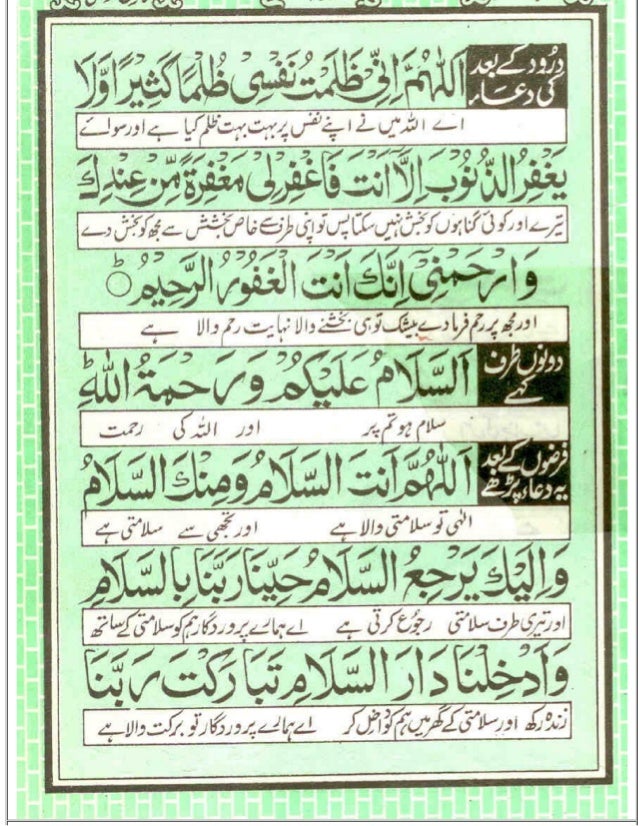 درود کے بعد کی دعاء
اَللّٰهُمَّ اِنِّىْ ظَلَمْتُ نَفْسِىْ ظُلْمًا كَثِيْرًا وَّلَا
اے اللہ میں نے اپنے نفس پر بہت بہت ظلم کیا ہے اور سوائے
يَغْفِرُ الذُّنُوْبَ اِلَّا اَنْتَ فَاغْفِرْ لِىْ مَغْفِرَةً مِّنْ عِنْدِكَ
تیرے اور کوئی گناہوں کو بخش نہیں سکتا پس تو اپنی طرف سے خاص بخشش سے مجھ کو بخش دے
وَارْحَمْنِىْ اِنَّكَ اَنْتَ الْغَفُوْرُ الرَّحِيْمُ ۝ؕ
اور مجھ پر رحم فرما دے بیشک تو ہی بخشنے والا نہایت رحم والا ہے
دونوں طرف کہے
اَلسَّلَامُ عَلَيْكُمْ وَرَحْمَةُ اللّٰهِؕ
سلام ہو تم پر اور اللہ کی رحمت
فرضوں کے بعد یہ دعاء پڑھے
اَللّٰهُمَّ اَنْتَ السَّلَامُ وَمِنْكَ السَّلَامُ
الٰہی تو سلامتی والا ہے اور تجھی سے سلامتی ہے
وَاِلَيْكَ يَرْجِعُ السَّلَامُ حَيِّنَا رَبَّنَا بِالسَّلَامِ
اور تیری طرف سلامتی رجوع کرتی ہے اے ہمارے پروردگار ہم کو سلامتی کے ساتھ
وَاَدْخِلْنَا دَارَ السَّلَامِ تَبَارَكْتَ رَبَّنَا
زندہ رکھ اور سلامتی کے گھر میں ہم کو داخل کر اے ہمارے پروردگار تو برکت والا ہے